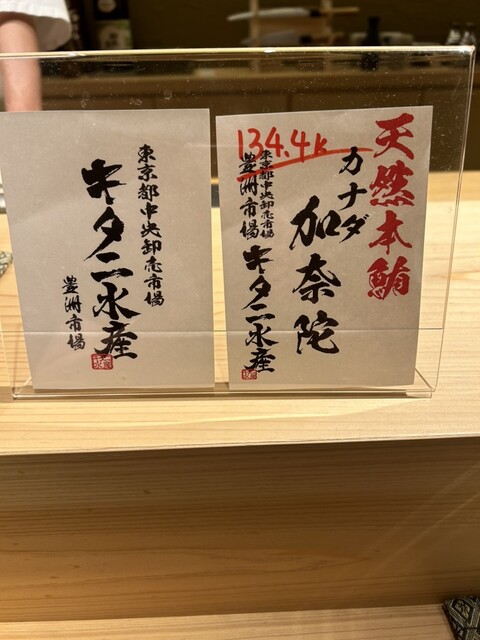 天然本鮪
カナダ
加奈陀
134.4k
東京都中央卸売市場
豊洲市場
キタニ水産
東京都中央卸売市場
キタニ水産
豊洲市場